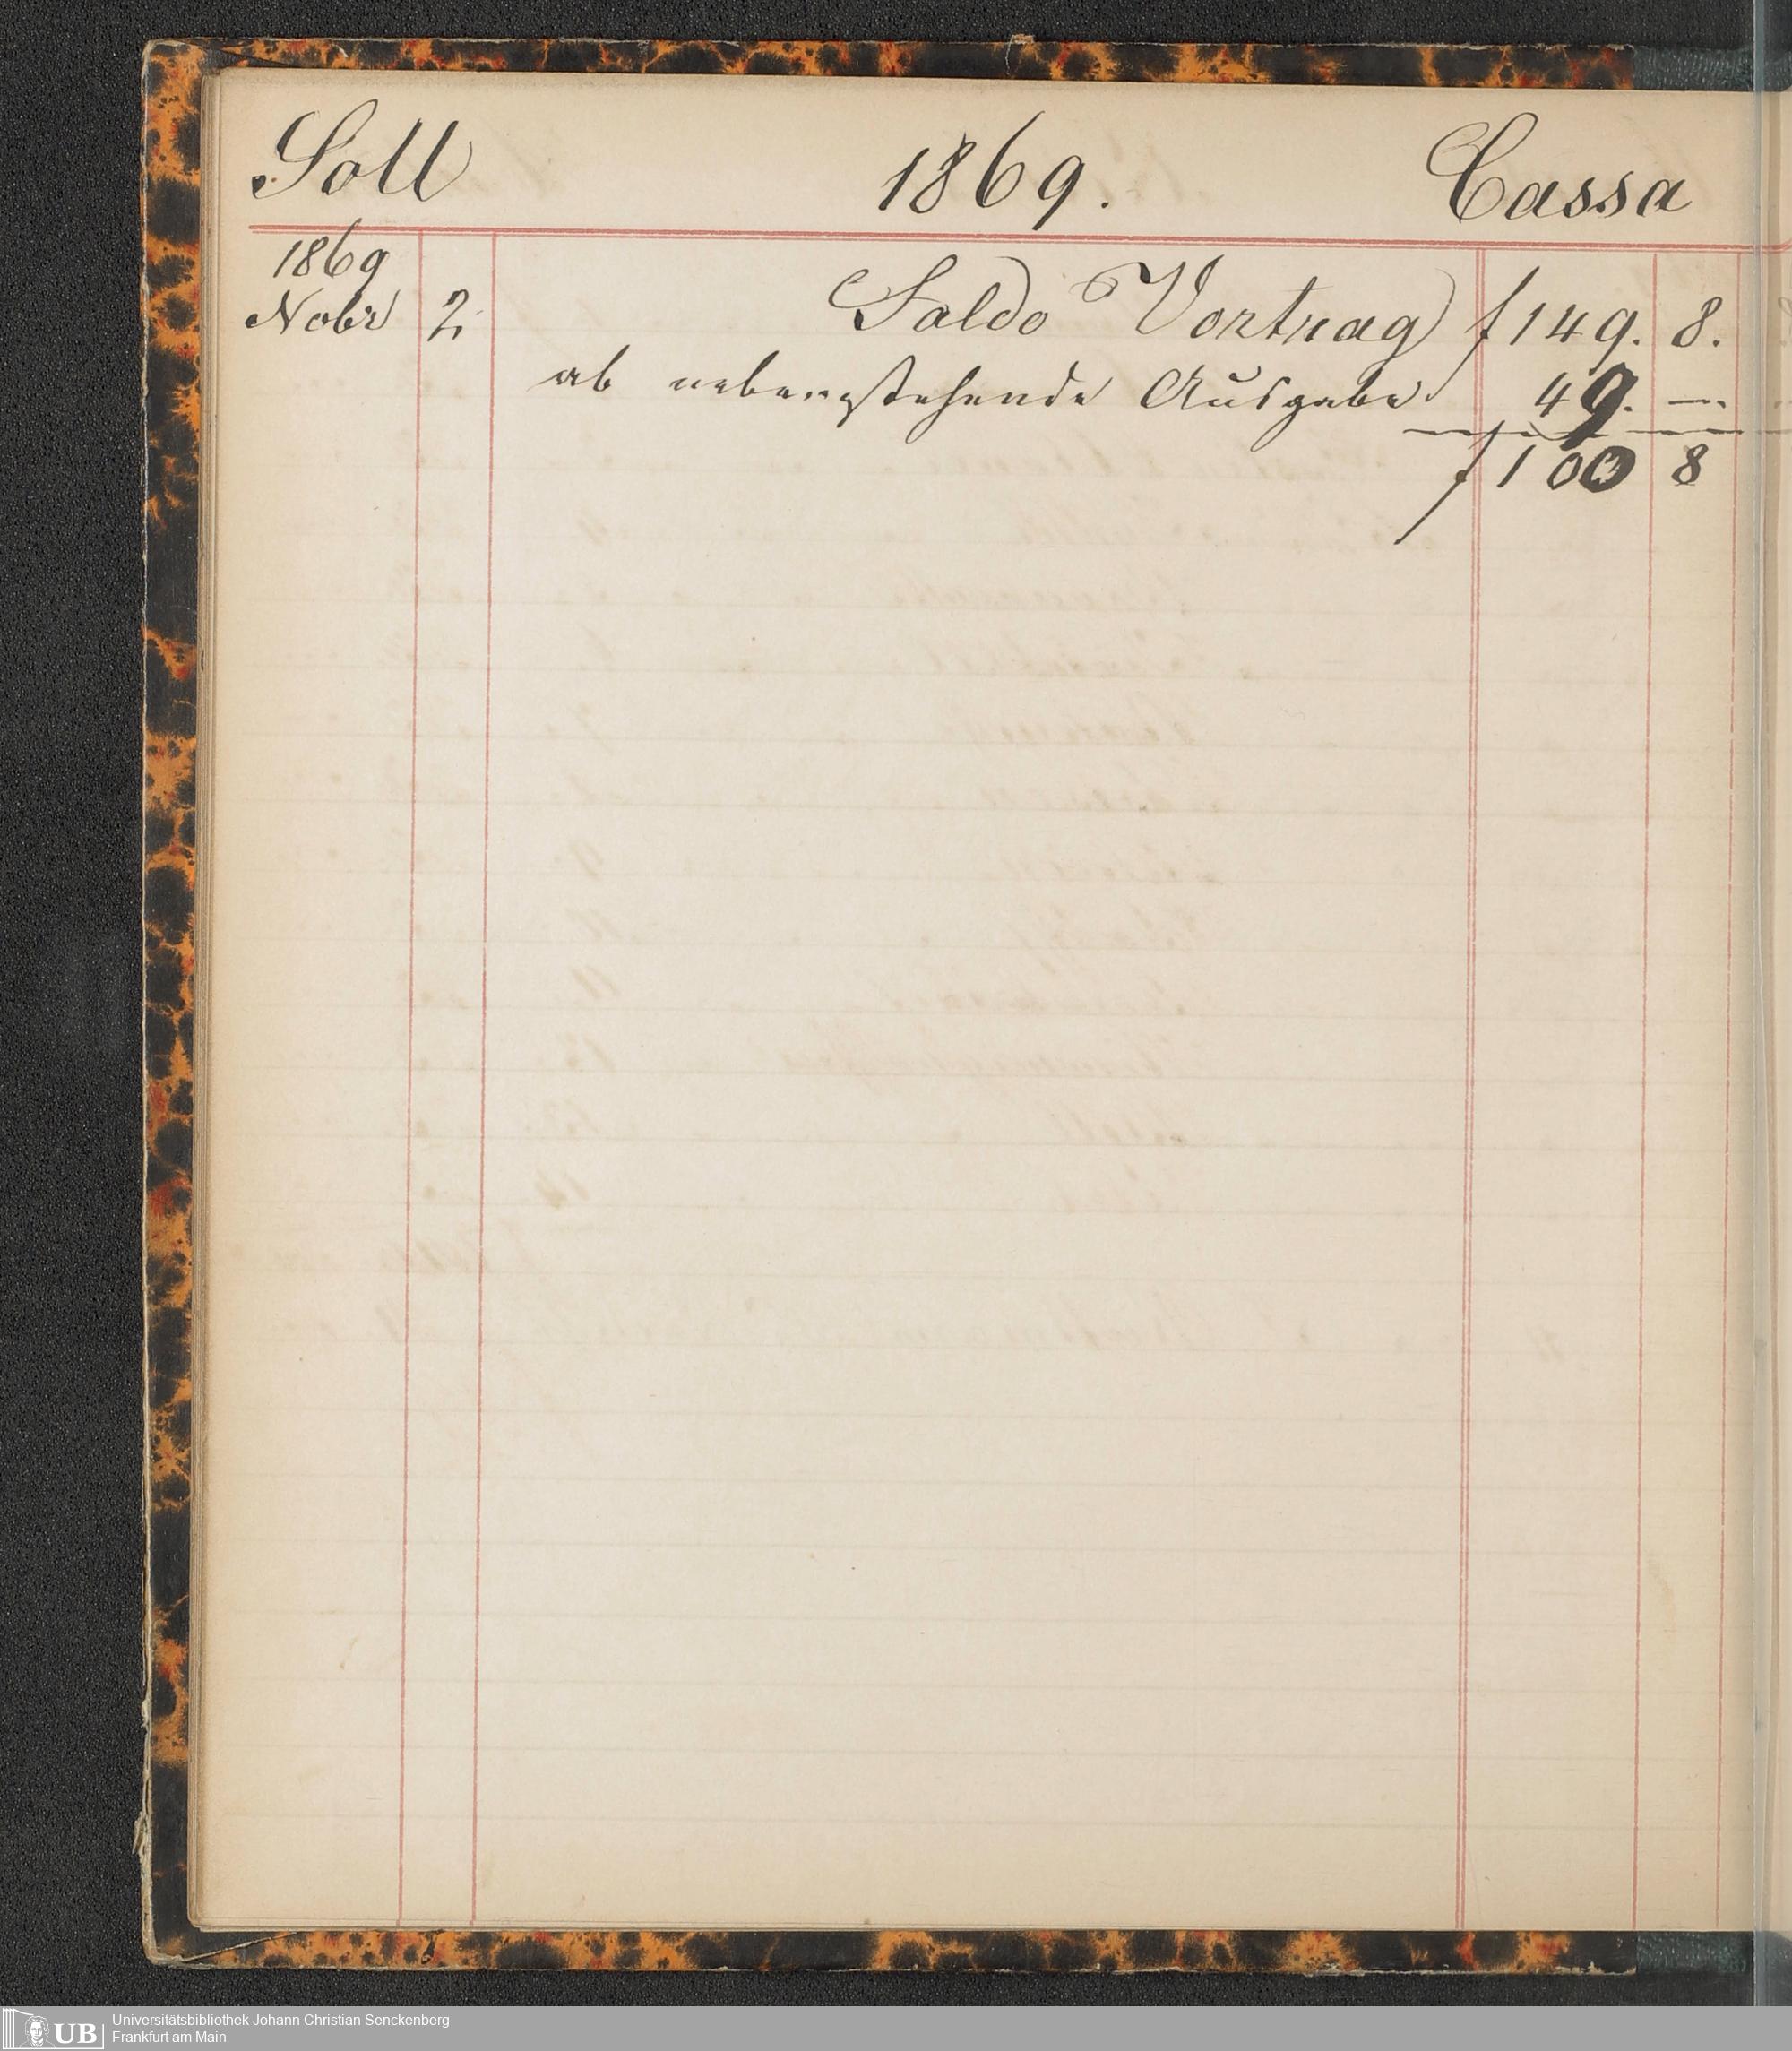 Soll 1869. Cassa
1869
Nobr 2 Saldo Vortrag f 149. 8.
ab nebenstehende Ausgabe 49. —
f 100 8
UB
Universitätsbibliothek Johann Christian Senckenberg
Frankfurt am Main